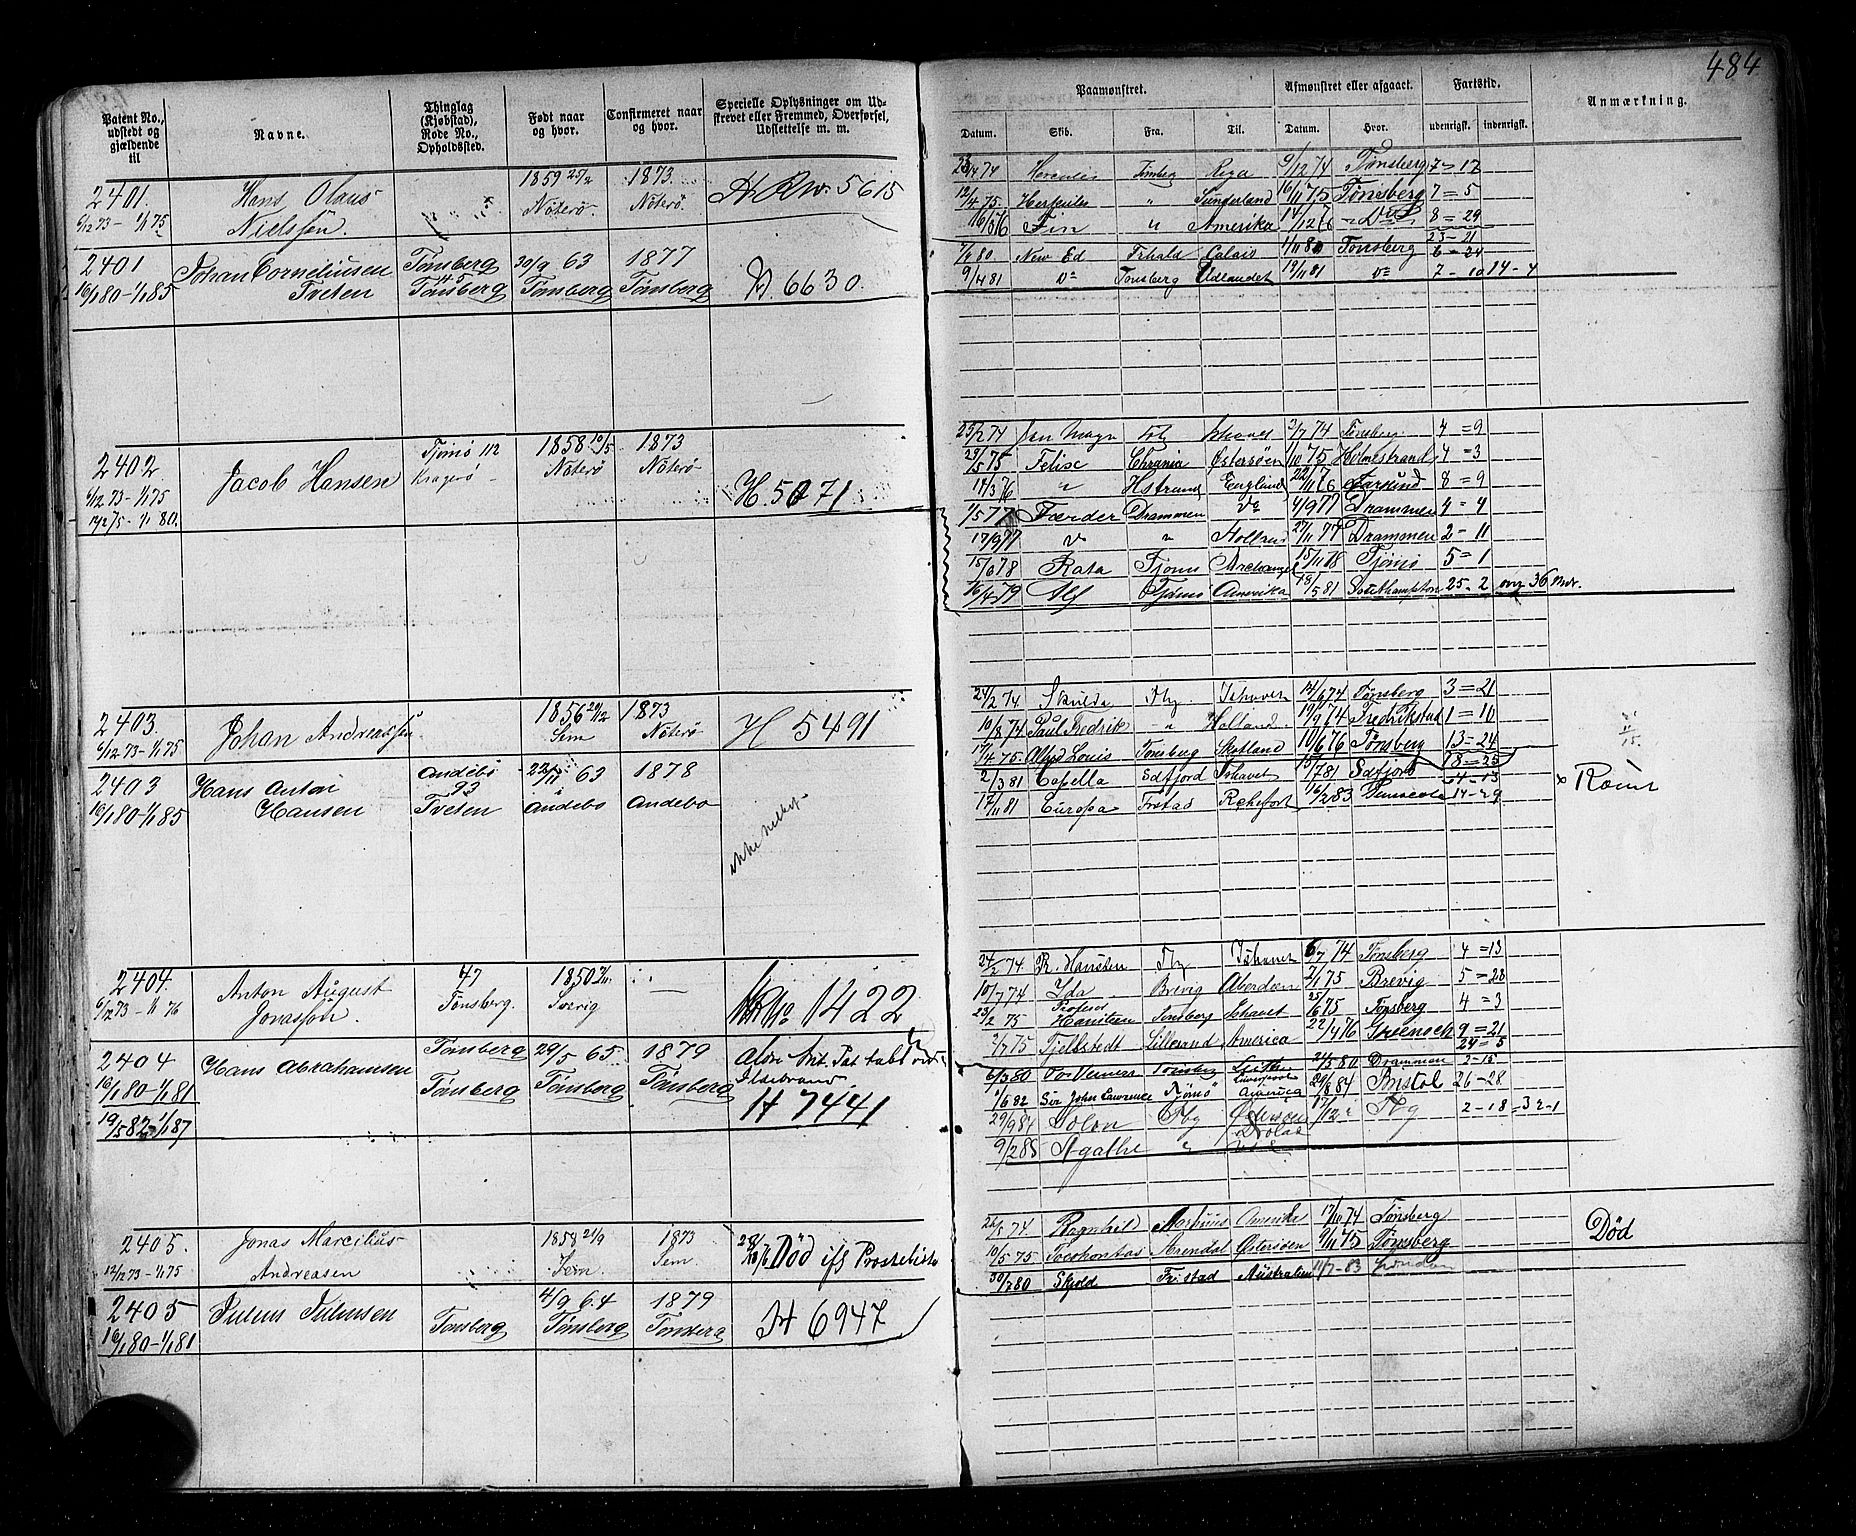 484
Patent No., udstedt og gjældende til
Navne.
Thinglag (Kjøbstad), Rode No., Opholdssted.
Født naar og hvor.
Confirmeret naar og hvor.
Specielle Oplysninger om Udskrevet eller Fremmed, Overførsel, Udslettelse m. m.
Paamønstret.
Afmønstret eller afgaaet.
Fartstid.
Anmærkning.
Datum. Skib. Fra. Til. Datum. Hvor. udenrigsk. indenrigsk.
2401. Hans Olaus 1859 25/2 1873.
6/12 73 - 1/1 75 Nielssen Nøterø. Nøterø. 5615
2401 Johan Corneliussen Tønsberg 30/9 63 1877
16/1 80 - 1/1 85 Tvesen 45 Tønsberg Tønsberg Tønsberg H. 6630.
74 Hercules Tønsberg Riga 9/12 74 Tønsberg 7=17
12/4 75 Herkules " Sunderland 10/11 75 Tønsberg 7=5
Fin " Amerika 8=29
23-21
80 New Ed Frhald Calais 1/11 80 Tønsberg 6-24
9/4 81 Do Tønsberg Udlandet 19/11 81 do 7-10 14-4
2402 Jacob Hansen Tjømø 112 1858 10/5 1873
6/12 73 - 1/1 75 Kragerø Nøterø Nøterø
14/2 75 - 1/1 80. H. 5071
25/2 74 Jan Mayn Tbg Ishavet 3/7 74 Tønsberg 4=9
29/5 75 Felix Chrania Østersøen 1/10 75 Holmestrand 4=3
14/3 76 " Hstrand England Farsund 8=9
1/5 77 Færder Drammen Do 4/9 77 Drammen 4-4
17/9 77 " " Holland 27/11 77 Drammen 2-11
15/6 78 Rata Tjømø 15/11 78 Tjømø 5=1
16/4 79 Alf Tjømø Amerika 18/5 81 Southampton 25-2 over 36 Mdr.
2403. Johan Andreassen 1856 29/12 1873
6/12 73 - 1/1 75 Sem Nøterø H 5491
2403 Hans Anton Andebo 22/11 63 1878
16/1 80 - 1/1 85 Hansen 93 Tvesen Andebo Andebo
24/2 74. Skulda Tbg. Ishavet 14/6 74 Tønsberg 3=21
10/8 74 Paul Fredrik - " Holland 19/9 74 Fredrikstad 1=10
17/4 75. Alfred Louis Tønsberg Skotland 10/6 76 Tønsberg 13=24
18=25
2/3 81 Capella Sdfjord Ishavet 15/7 81 Sdfjord -4-13
17/11 81 Europa Frstad Rochefort 16/2 83 Pensacola 14-29
× Rømt
2404. Anton August 47 1850
6/12 73 - 1/1 76 Jonassøn. Tønsberg. Sverig — 1422
2404 Hans Abrahamsen Tønsberg 29/5 65 1879
16/1 80 - 1/1 81 Tønsberg Tønsberg Tønsberg
19/5 82 - 1/1 87 Ildebrand H 7441
24/2 74. R. Hansten Tbg Ishavet 6/7 74 Tønsberg 4=13
10/7 74 Ida Brevig Aberdeen 2/1 75 Brevig 5=28
23/2 75 Profesor Hansteen Tønsberg Ishavet 25/6 75 Tønsberg 4=3
3/7 75 Fjeldstedt Lillesand America 22/4 76 Greenoch 9=21
24=5
6/3 80 Tønsberg Leith 24/5 80 Drammen 2-15
1/6 82 Sir John Lawrence Tjømø Liverpool America 29/8 84 Bristol 26-28
29/9 84 Solon Tbg Østersøen 17/12 " Tbg 2-18=32-1
9/2 85 Agathe "
2405. Jonas Marcelius 1858 24/9 1873
12/12 73 - 1/1 75 Andreasen Sem Sem. Død
2405 Julius Juliussen 4/9 64 1879
16/1 80 - 1/1 81 Tønsberg Tønsberg Tønsberg H 6947
74. Ragnhild Amerika 17/10 74 Tønsberg
10/5 75 Pocohontas Arendal Østersøen 9/11 75 Tønsberg
30/7 80 Skjold Fristad Australien 11/7-83 London
Død